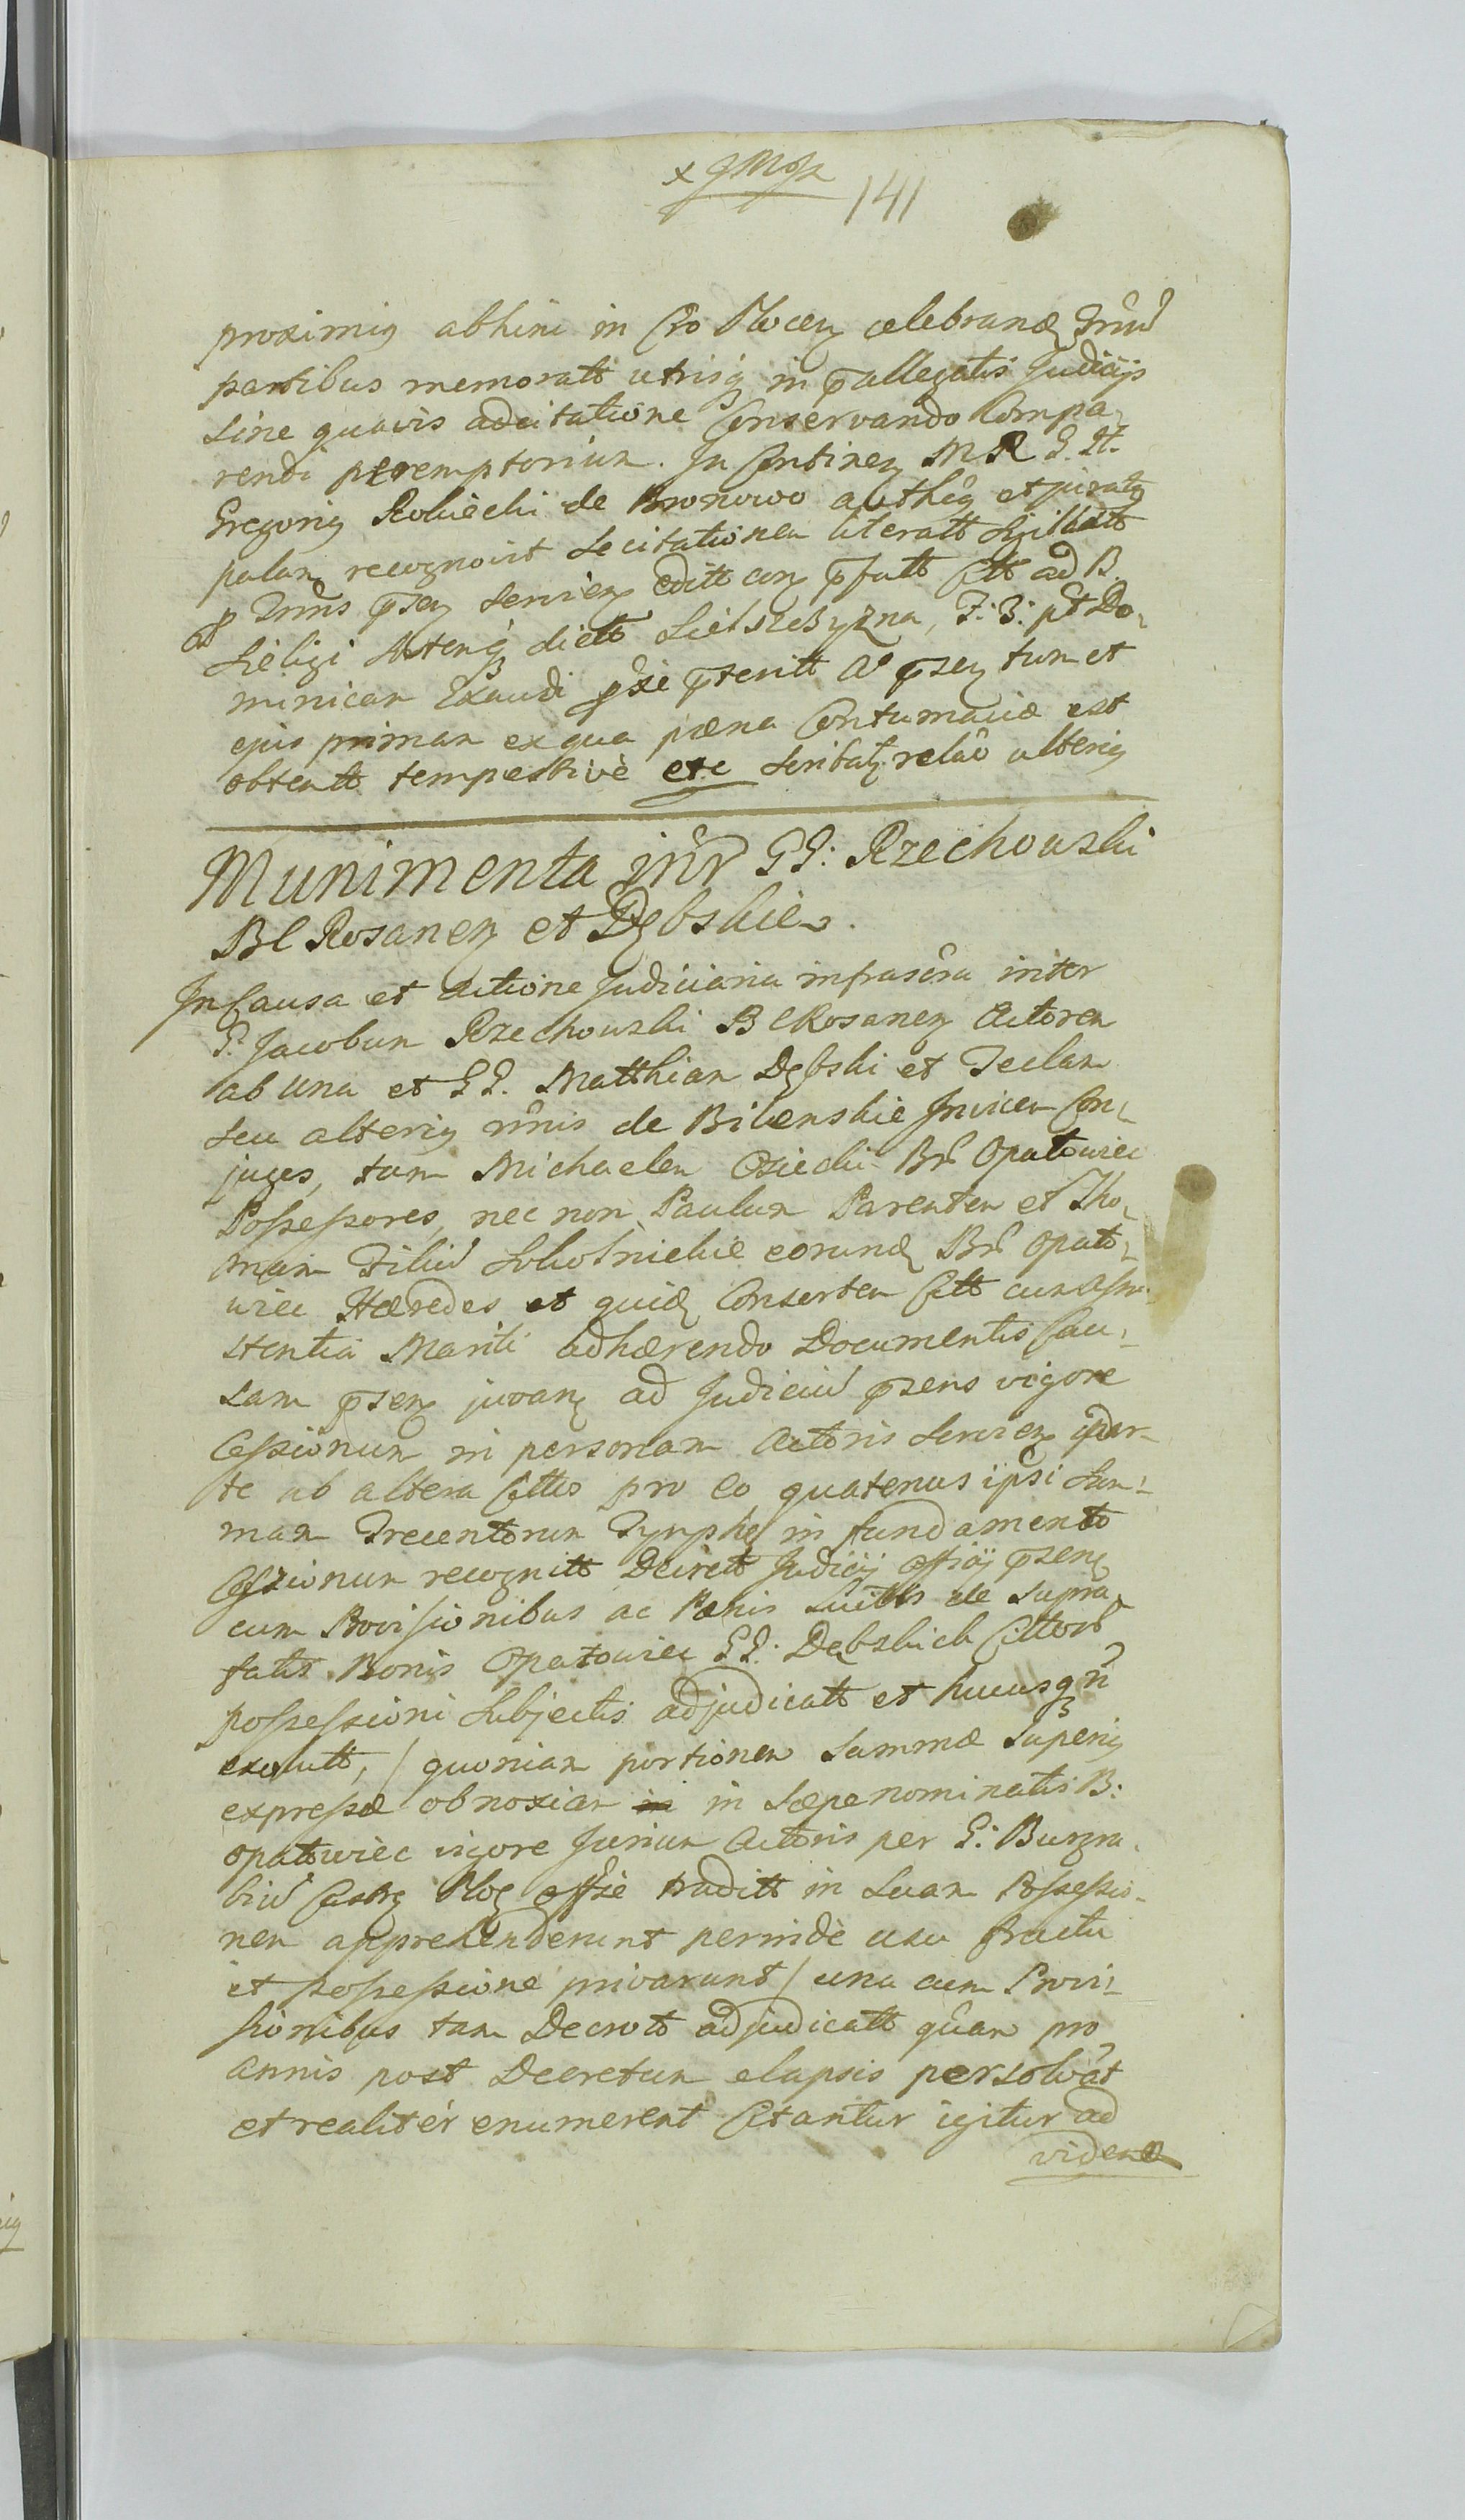 x JMJx
141
proximis abhinc in Cro Plocen celebrand Trũũ
partibus memoratt utrisq in p̄allegatis Judicijs
sine quavis adcitatione Conservando Compa-
rendi peremptorium. In Continen M R G. H.
Gregoriq Robiecki de Bronowo authēq et juratq
palam recognovit se citationem literatt sigillatt
p Trũis p̄sen servien editt con p̄fatt Citt ad B.
Sieligi dictt Sielszczyzna, F. 3. pt Do-
minicam Exaudi p̄xie p̄teritt A° p̄sen tum et
ejus primam ex qua pæna Contumaciæ est
obtentt tempestivè etc scribaq relão ulteriq
Munimenta inr̃ GG: Rzechowski
BC Rosanen et Dębskie.
In Causa et actione Judiciaria infrascra inter
G. Jacobum Rzechowski BC Rosanen Actorem
ab una et GG. Matthiam Dębski et Teclam
seu alteriq nr̃nis de Bilenskie Invicem Con-
juges, tam Michaelem Osiecki Br̃ Opatowiec
Possessores, nec non Paulum Parentem et Tho-
mam Filiũ Sokolnickie eorund Br̃ Opato-
wiec Hæredes et quid Consortem Citt cum Assi-
stentia Mariti adhærendo Documentis Cau-
sam p̄sen juvan ad Judiciũ p̄sens vigore
Cessionum in personam Actoris servien par-
te ab altera Cittos pro eo quatenus ipsi Sum-
mam Trecentorum Tympho in fundamento
Cessionum recognitt Decrett Judicij officij p̄sen
cum Provisionibus ac Pænis Luitts de supra-
fatis Bonis Opatowiec GG: Dębskich Cittorũ
possessioni subjectis adjudicatt et hucusq nõ
exolutt, / quoniam portionem Summæ superiq
expressæ obnoxiam in in sæpenominatis B:
Opatowiec vigore Jurium Actoris per G: Burgra-
biũ Castrq Ploc offie traditt in suam Possessio-
nem apprehenderunt perinde usu fructu
et possessione privarunt / una cum Provi-
sionibus tam Decreto adjudicatt quam pro
annis post Decretum elapsis persolvãt
et realiter enumerent Citantur igitur ad
vidend